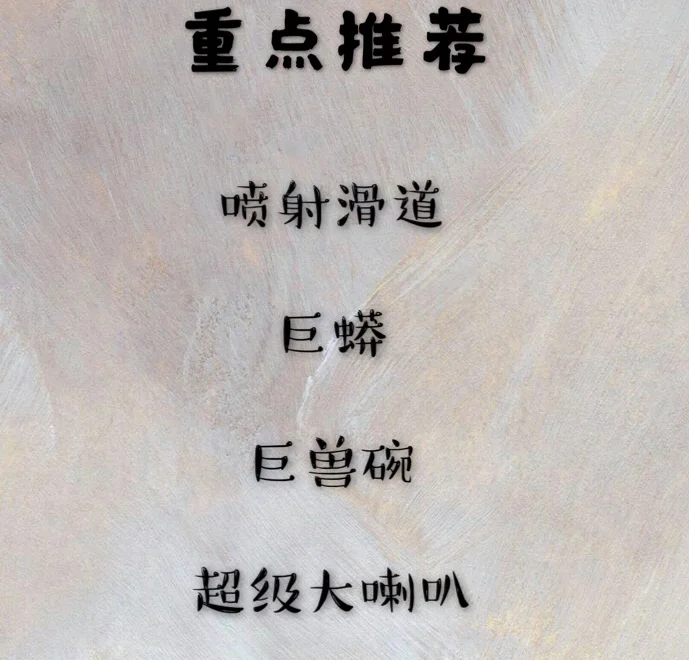 重点推荐
喷射滑道
巨蟒
巨兽碗
超级大喇叭